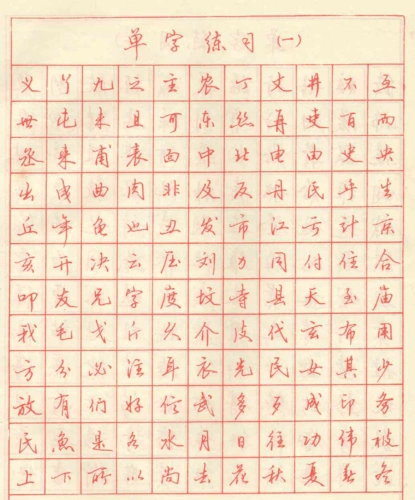 单字练习(一)
义 丫 九 之 主 农 丁 丈 井 不 互
世 屯 未 且 可 东 丝 再 吏 百 而
丞 来 甫 表 面 中 北 电 由 史 央
出 戌 曲 肉 非 及 反 丹 民 乎 生
丘 年 龟 也 丑 发 市 江 亏 计 京
亥 开 决 云 压 刘 力 同 付 住 合
叩 友 兄 字 度 坟 寺 县 天 玉 庙
我 毛 戈 斤 久 介 皮 代 玄 布 用
方 分 必 注 耳 衣 先 民 女 其 少
放 有 们 好 信 武 多 歹 成 印 务
民 鱼 是 名 水 月 日 往 功 伟 被
上 下 所 以 尚 去 花 秋 夏 春 冬